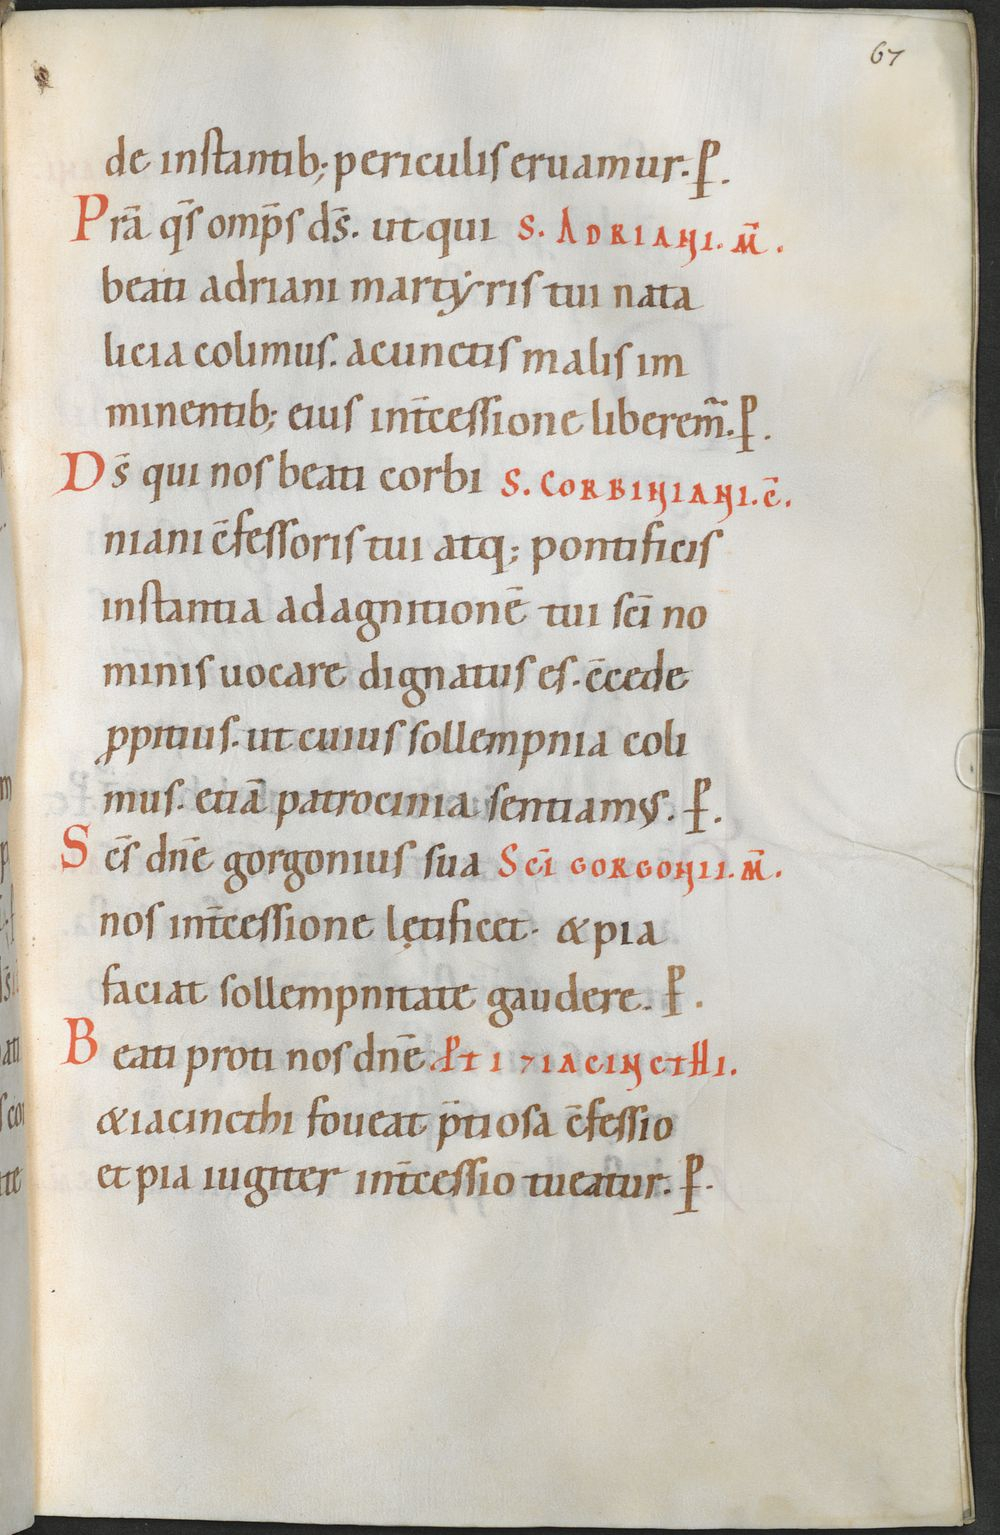 67
de instantib; periculis eruamur. P̵.
Prā q̄s omp̄s ds̄. ut qui S. ADRIANI. M̄.
beati adriani martẏris tui nata
licia colimus. a cunctis malis im
minentib; eius int̄cessione liberem̄. P̵.
Ds̄ qui nos beati corbi S. CORBINIANI. c̄.
niani c̄fessoris tui atq; pontificis
instantia ad agnitionē tui sc̄i no
minis uocare dignatus es. c̄cede
ꝓpitius. ut cuius sollempnia coli
mus. etiā patrocinia sentiamus. P̵.
Sc̄s dn̄e gorgonius sua Sc̄i GORGONII. M̄.
nos int̄cessione lętificet. & pia
faciat sollempnitate gaudere. P̵.
Beati proti nos dn̄e. PTI ⁊ IACINCTHI.
& iacincthi foueat p̄tiosa c̄fessio
et pia iugiter int̄cessio tueatur. P̵.